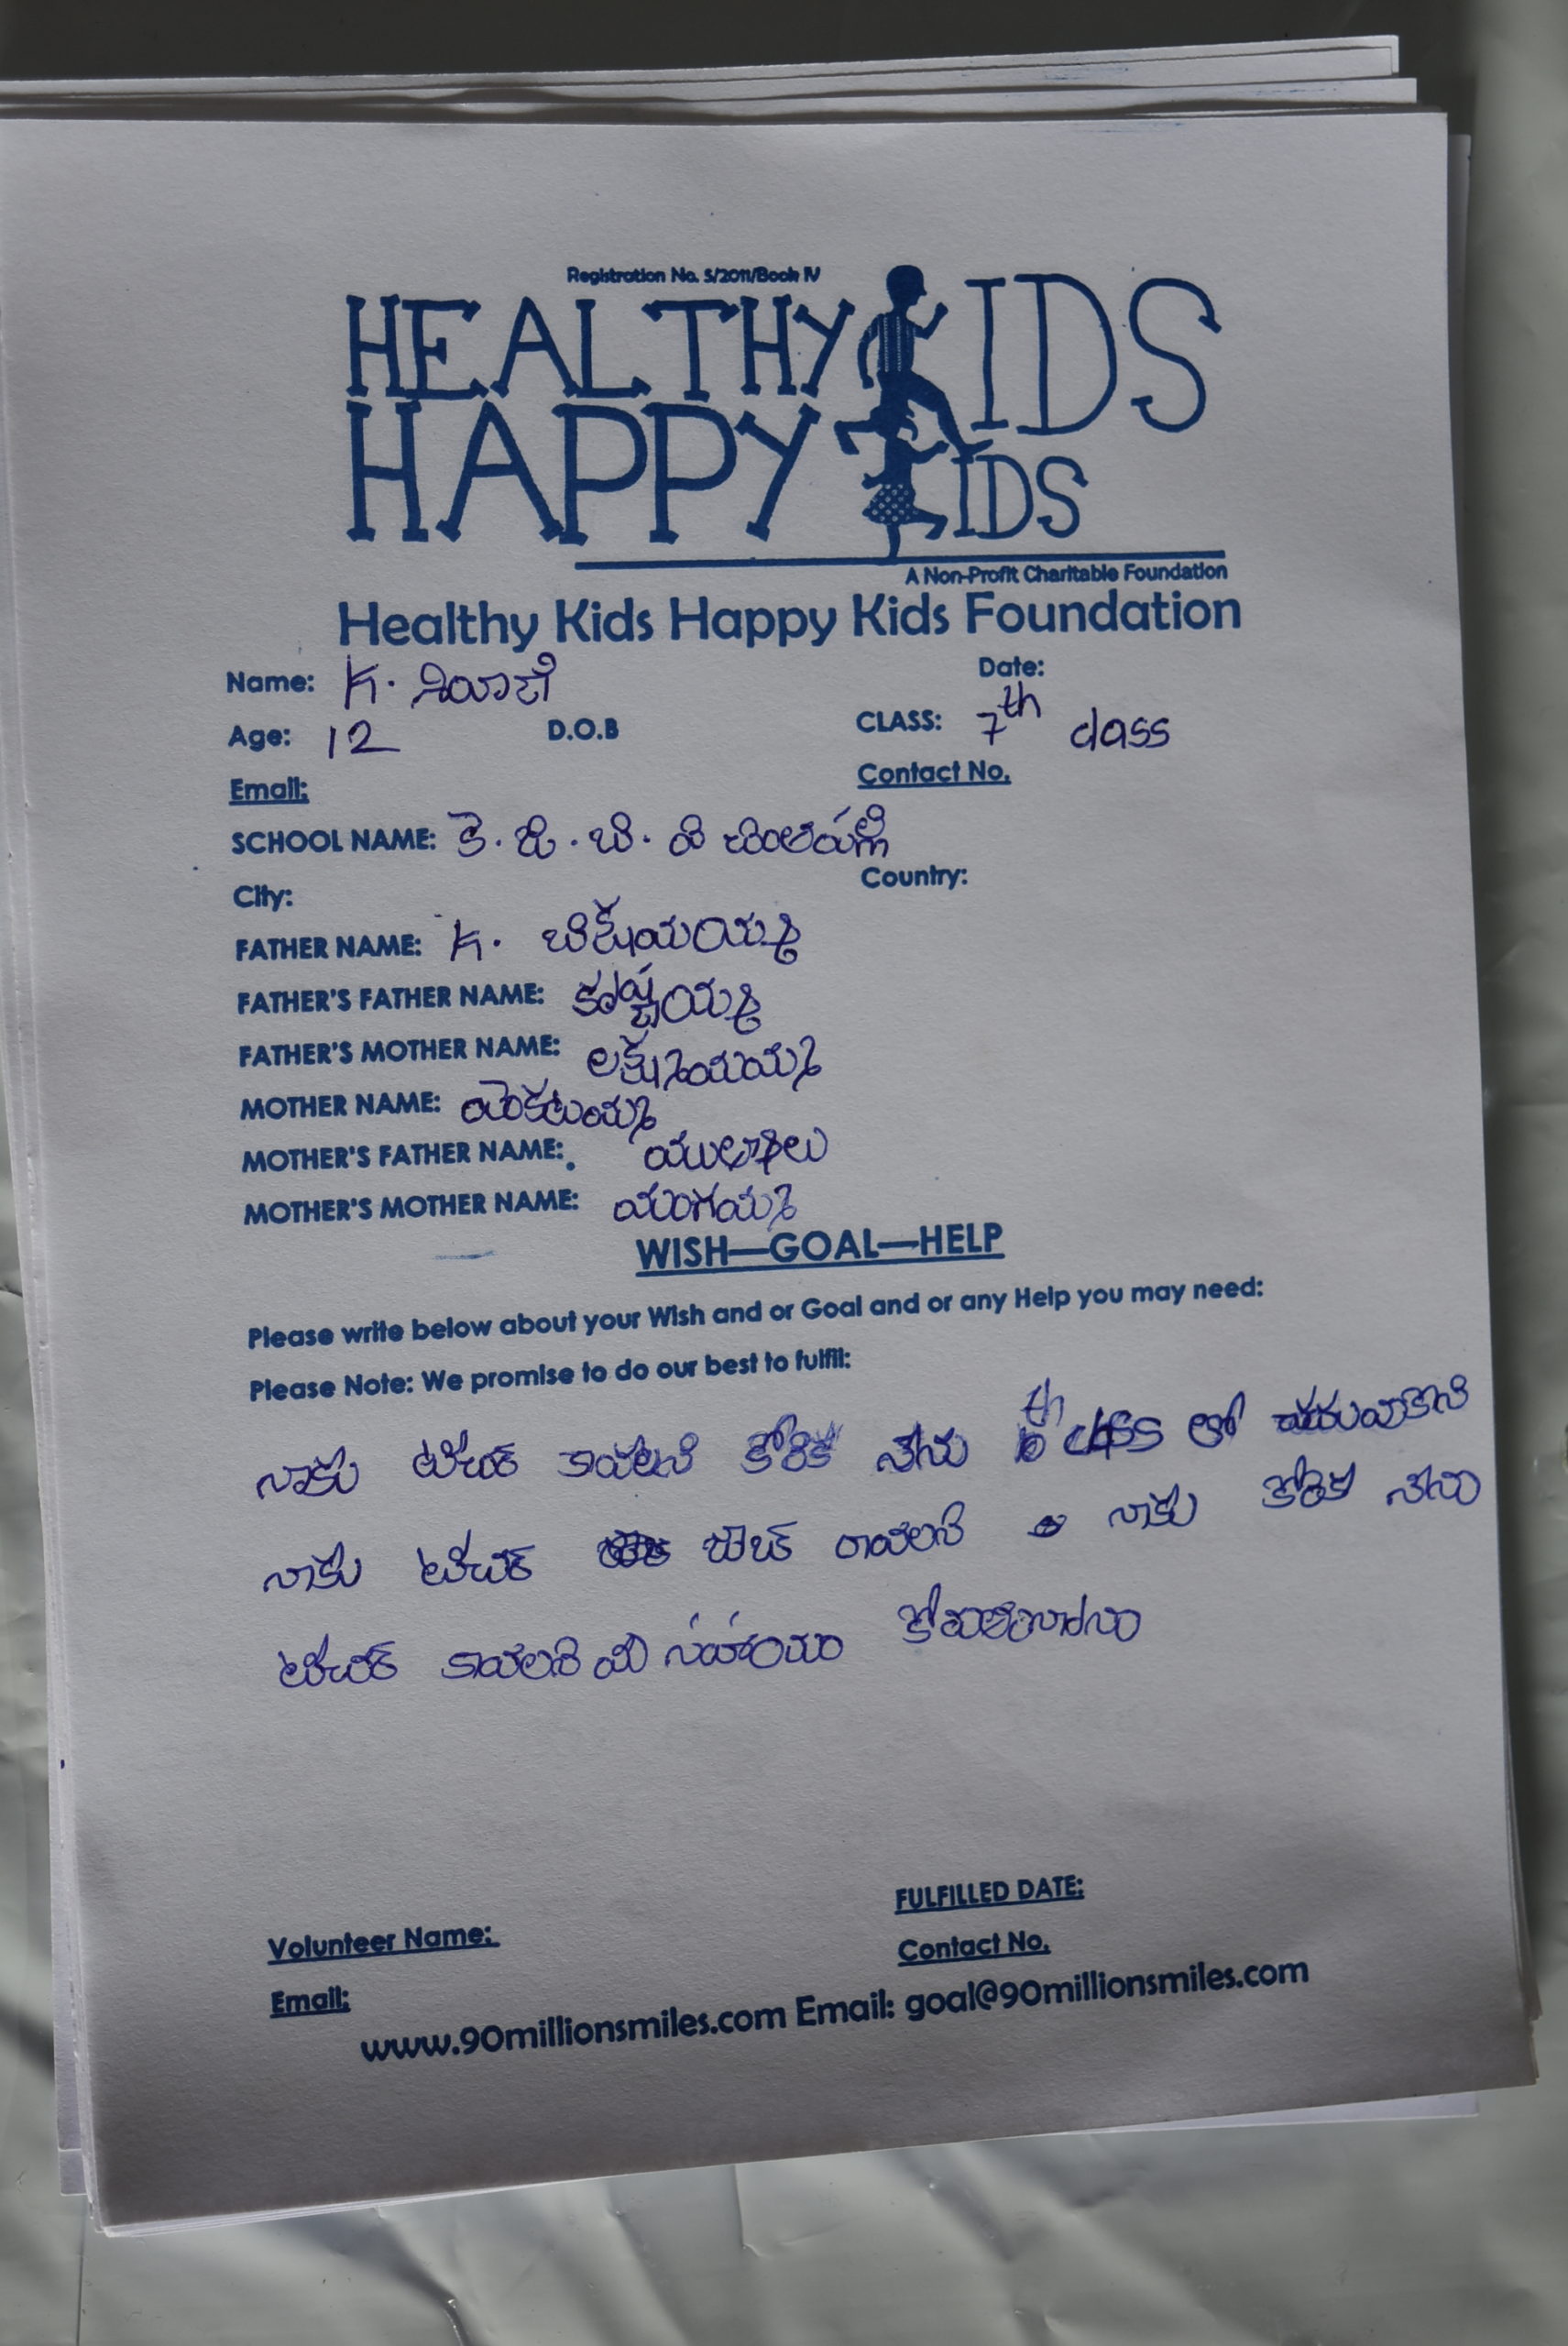 Registration No. 5/2011/Book IV
HEALTHY KIDS
HAPPY KIDS
A Non-Profit Charitable Foundation
Healthy Kids Happy Kids Foundation
Name: K.
Date:
Age: 12 D.O.B CLASS: 7th class
Email: Contact No.
SCHOOL NAME: కె. జి. బి. వి చింతపల్లి
City: Country:
FATHER NAME: K. బిక్షమయ్య
FATHER'S FATHER NAME: కృష్ణయ్య
FATHER'S MOTHER NAME: లక్ష్మమ్మ
MOTHER NAME: వెంకటమ్మ
MOTHER'S FATHER NAME:
MOTHER'S MOTHER NAME:
WISH—GOAL—HELP
Please write below about your Wish and or Goal and or any Help you may need:
Please Note: We promise to do our best to fulfil:
నాకు టీచర్ కావలని కోరిక నేను class లో
నాకు టీచర్ జాబ్ రావలని నాకు కోరిక నేను
టీచర్ కావలని మీ సహాయం
FULFILLED DATE:
Volunteer Name: Contact No.
Email:
www.90millionsmiles.com Email: goal@90millionsmiles.com